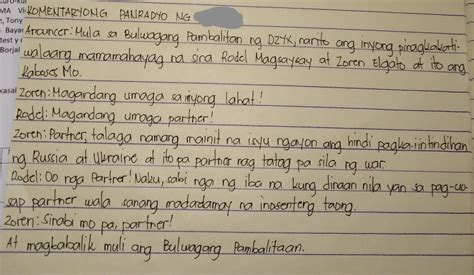 KOMENTARYONG PANRADYO NG
Anauncer: Mula sa Bulwagang Pambalitan ng DZYX, narito ang inyong pinagkakati-
walaang mamamahayag na sina Rodel Magsaysay at Zoren Elgato at ito ang
Kaboses Mo.
Zoren: Magandang umaga sainyong lahat!
Rodel: Magandang umaga partner!
Zoren: Partner, talaga namang mainit na isyu ngayon ang hindi pagka-iintindihan
ng Russia at Ukraine at ito pa partner nag tatag pa sila ng war.
Rodel: Oo nga Partner! Naku, sabi nga ng iba na kung dinaan nila yan sa pag-uu-
sap partner wala sanang madadamay na inosenteng taong.
Zoren: Sinabi mo pa, partner!
At magbabalik muli ang Bulwagang Pambalitaan.
MA
, Tony
Bayar
test y
Borjal
kasal